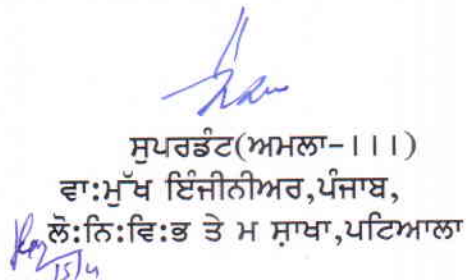 ਸੁਪਰਡੰਟ(ਅਮਲਾ-।।।)
ਵਾ:ਮੁੱਖ ਇੰਜੀਨੀਅਰ,ਪੰਜਾਬ,
ਲੋ:ਨਿ:ਵਿ:ਭ ਤੇ ਮ ਸ਼ਾਖਾ,ਪਟਿਆਲਾ
15/4